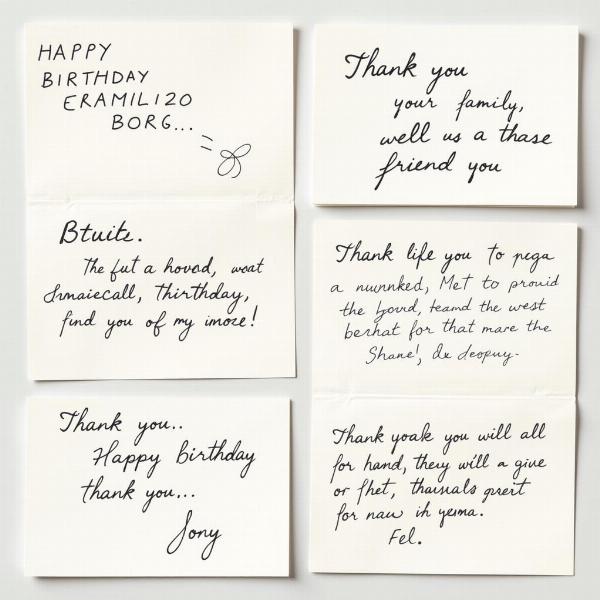 HAPPY
BIRTHDAY
ERAMILIZO
BORG...
Btuite.
The fut a hovod, woat
thirthday,
find you of my imoze!
Thank you..
Happy birthday
thank you...
Jony
Thank you
your family,
well us a thase
friend you
Thank life you to pega
a nunnked, Met to prouid
the teamd the west
berhat for that mare the
Shane!, dx
Thank yoak you will all
for hand, they will a give
or fhet,
for naw ih yema.
Fel.